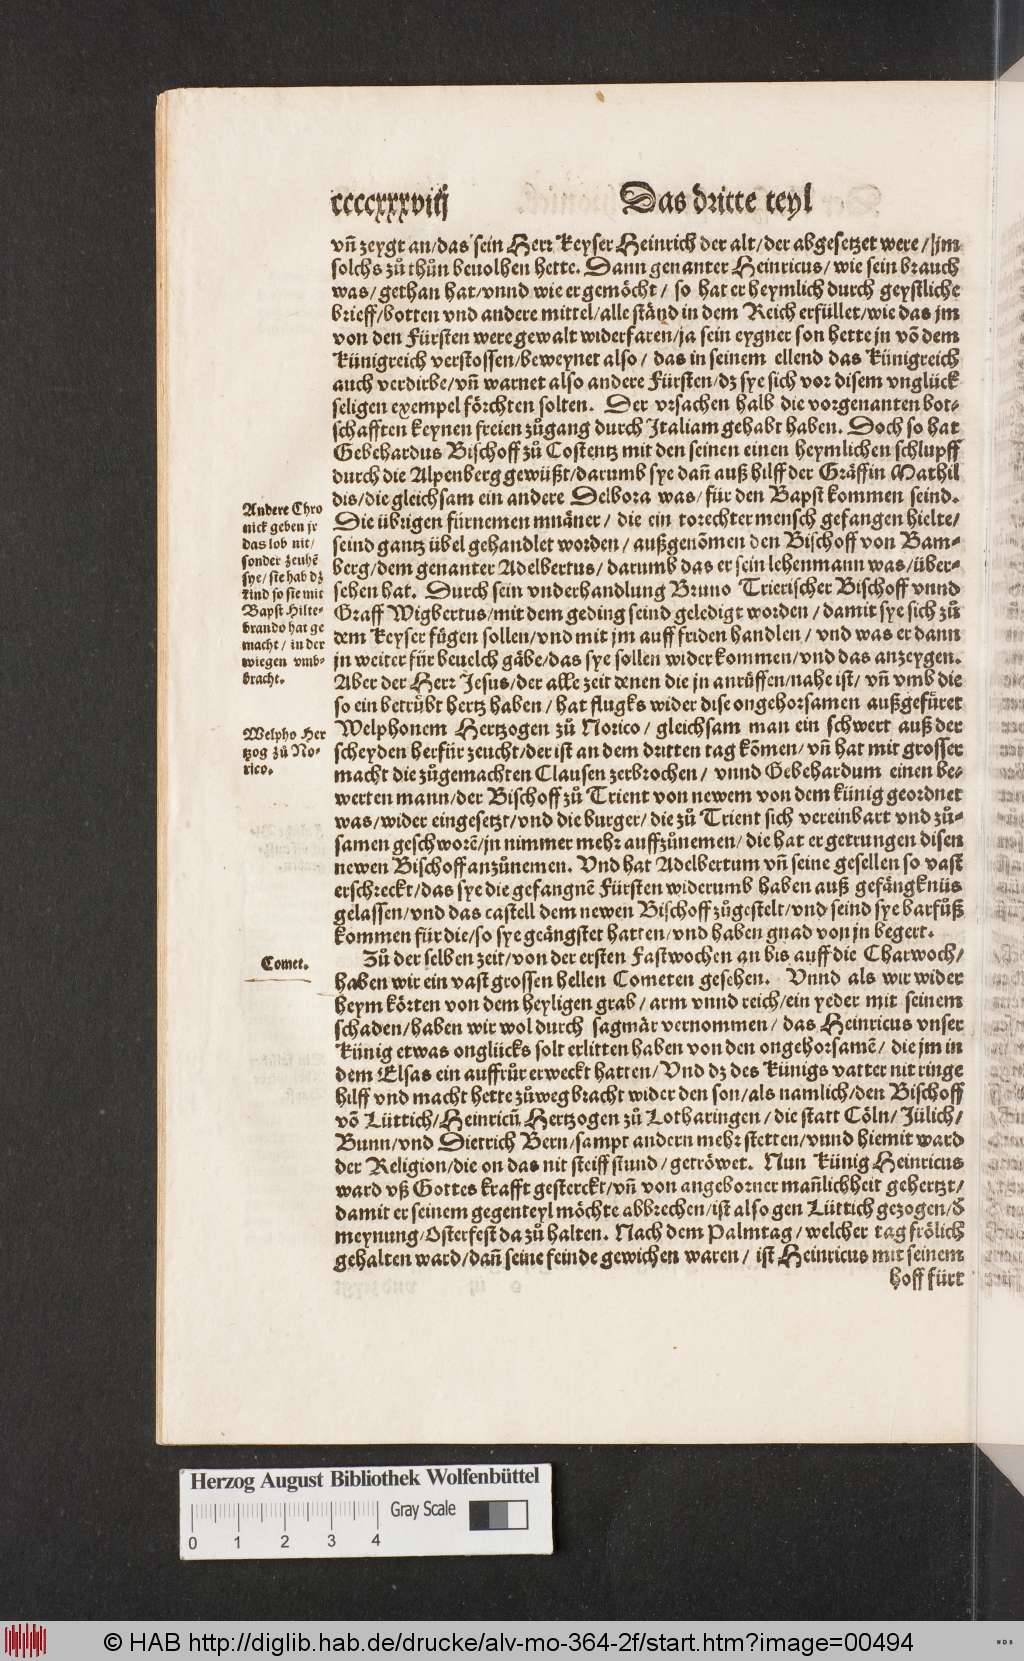 ccccxxxviij
Das dritte teyl
vñ zeygt an/das sein Herr Keyser Heinrich der alt/der abgesetzet were/jm
solchs zů thůn beuolhen hette. Dann genanter Heinricus/wie sein brauch
was/gethan hat/vnnd wie er gemöcht/ so hat er heymlich durch geystliche
brieff/botten vnd andere mittel/alle ständ in dem Reich erfüllet/wie das jm
von den Fürsten were gewalt widerfaren/ja sein eygner son hette jn võ dem
Künigreich verstossen/beweynet also/ das in seinem ellend das Künigreich
auch verdirbe/vñ warnet also andere Fürsten/dz sye sich vor disem vnglück
seligen exempel förchten solten. Der vrsachen halb die vorgenanten bot⸗
schafften keynen freien zůgang durch Italiam gehabt haben. Doch so hat
Gebehardus Bischoff zů Costentz mit den seinen einen heymlichen schlupff
durch die Alpenberg gewüßt/darumb sye dañ auß hilff der Gräffin Mathil
dis/die gleichsam ein andere Delbora was/ für den Bapst kommen seind.
Die übrigen fürnemen mnäner/ die ein torechter mensch gefangen hielte/
seind gantz übel gehandlet worden/ außgenõmen den Bischoff von Bam⸗
berg/dem genanter Adelbertus/ darumb das er sein lehenmann was/über⸗
sehen hat. Durch sein vnderhandlung Bruno Trierischer Bischoff vnnd
Graff Wigbertus/mit dem geding seind geledigt worden/ damit sye sich zů
dem Keyser fügen sollen/vnd mit jm auff friden handlen/ vnd was er dann
jn weiter für beuelch gäbe/das sye sollen wider kommen/vnd das anzeygen.
Aber der Herr Jesus/der alle zeit denen die jn anrüffen/nahe ist/ vñ vmb die
so ein betrübt hertz haben/ hat flugks wider dise ongehorsamen außgefüret
Welphonem Hertzogen zů Norico/ gleichsam man ein schwert auß der
scheyden herfür zeucht/der ist an dem dritten tag kõmen/vñ hat mit grosser
macht die zůgemachten Clausen zerbrochen/ vnnd Gebehardum einen be⸗
werten mann/der Bischoff zů Trient von newem von dem künig geordnet
was/wider eingesetzt/vnd die burger/die zů Trient sich vereinbart vnd zů⸗
samen geschworẽ/jn nimmer mehr auffzůnemen/die hat er getrungen disen
newen Bischoff anzůnemen. Vnd hat Adelbertum vñ seine gesellen so vast
erschreckt/das sye die gefangnẽ Fürsten widerumb haben auß gefängknüs
gelassen/vnd das castell dem newen Bischoff zůgestelt/vnd seind sye barfůß
kommen für die/so sye geängstet hatten/vnd haben gnad von jn begert.
Zů der selben zeit/von der ersten Fastwochen an bis auff die Charwoch/
haben wir ein vast grossen hellen Cometen gesehen. Vnnd als wir wider
heym körten von dem heyligen grab/ arm vnnd reich/ein yeder mit seinem
schaden/haben wir wol durch sagmär vernommen/ das Heinricus vnser
Künig etwas onglücks solt erlitten haben von den ongehorsamẽ/ die jm in
dem Elsas ein auffrůr erweckt hatten/Vnd dz des Künigs vatter nit ringe
hilff vnd macht hette zůweg bracht wider den son/als namlich/den Bischoff
võ Lüttich/Heinricũ Hertzogen zů Lotharingen/die statt Cöln/ Jülich/
Bunn/vnd Dietrich Bern/sampt andern mehr stetten/vnnd hiemit ward
der Religion/die on das nit steiff stund/getröwet. Nun Künig Heinricus
ward vß Gottes krafft gesterckt/vñ von angeborner mañlichheit gehertzt/
damit er seinem gegenteyl möchte abbrechen/ist also gen Lüttich gezogen/d
meynung/Osterfest da zů halten. Nach dem Palmtag/welcher tag frölich
gehalten ward/dañ seine feinde gewichen waren/ ist Heinricus mit seinem
hoff fürt
Andere Chro
nick geben jr
das lob nit/
sonder zeuhẽ
sye/sie hab dz
kind so sie mit
Bapst Hilte⸗
brando hat ge
macht/in der
wiegen vmb⸗
bracht.
Welpho Her
tzog zů No⸗
rico.
Comet.
Herzog August Bibliothek Wolfenbüttel
Gray Scale
0 1 2 3 4
© HAB http://diglib.hab.de/drucke/alv-mo-364-2f/start.htm?image=00494